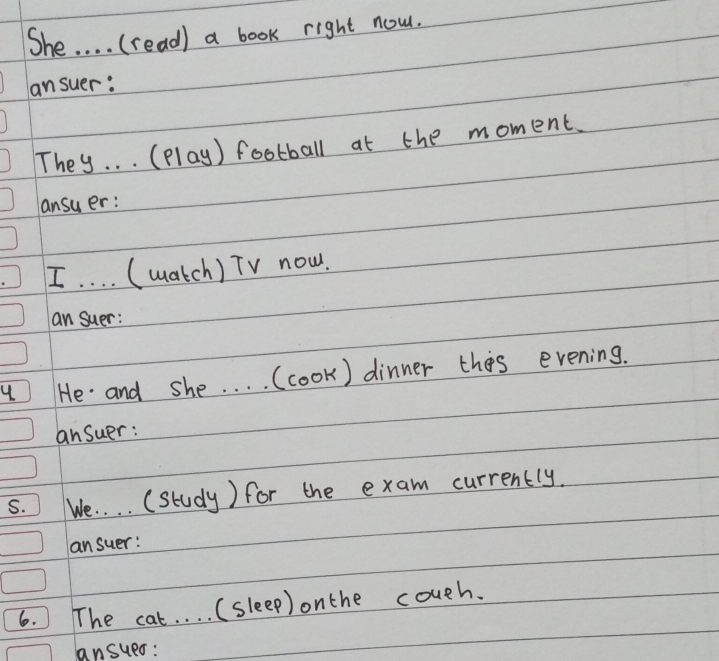 She .... (read) a book right now.
answer:
They ... (play) football at the moment.
answer:
I .... (watch) TV now.
answer:
4. He and she .... (cook) dinner this evening.
answer:
5. We .... (study) for the exam currently.
answer:
6. The cat .... (sleep) on the couch.
answer: